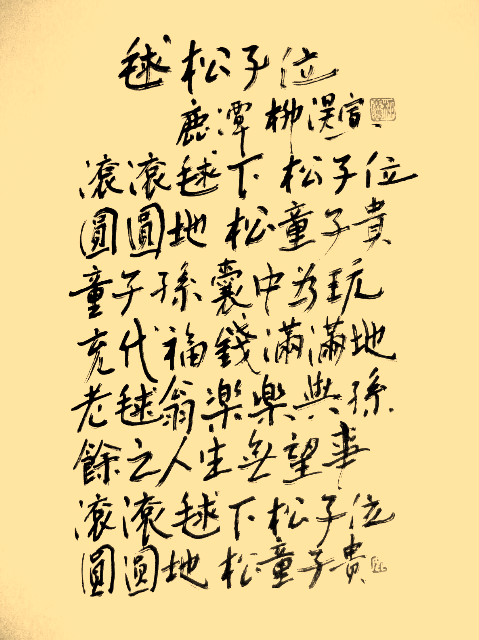 毬松子位
鹿潭 柳渼宣
滾滾毬下松子位
圓圓地松童子貴
童子孫囊中為玩
充代福錢滿滿地
老毬翁樂樂與孫
餘之人生無望事
滾滾毬下松子位
圓圓地松童子貴